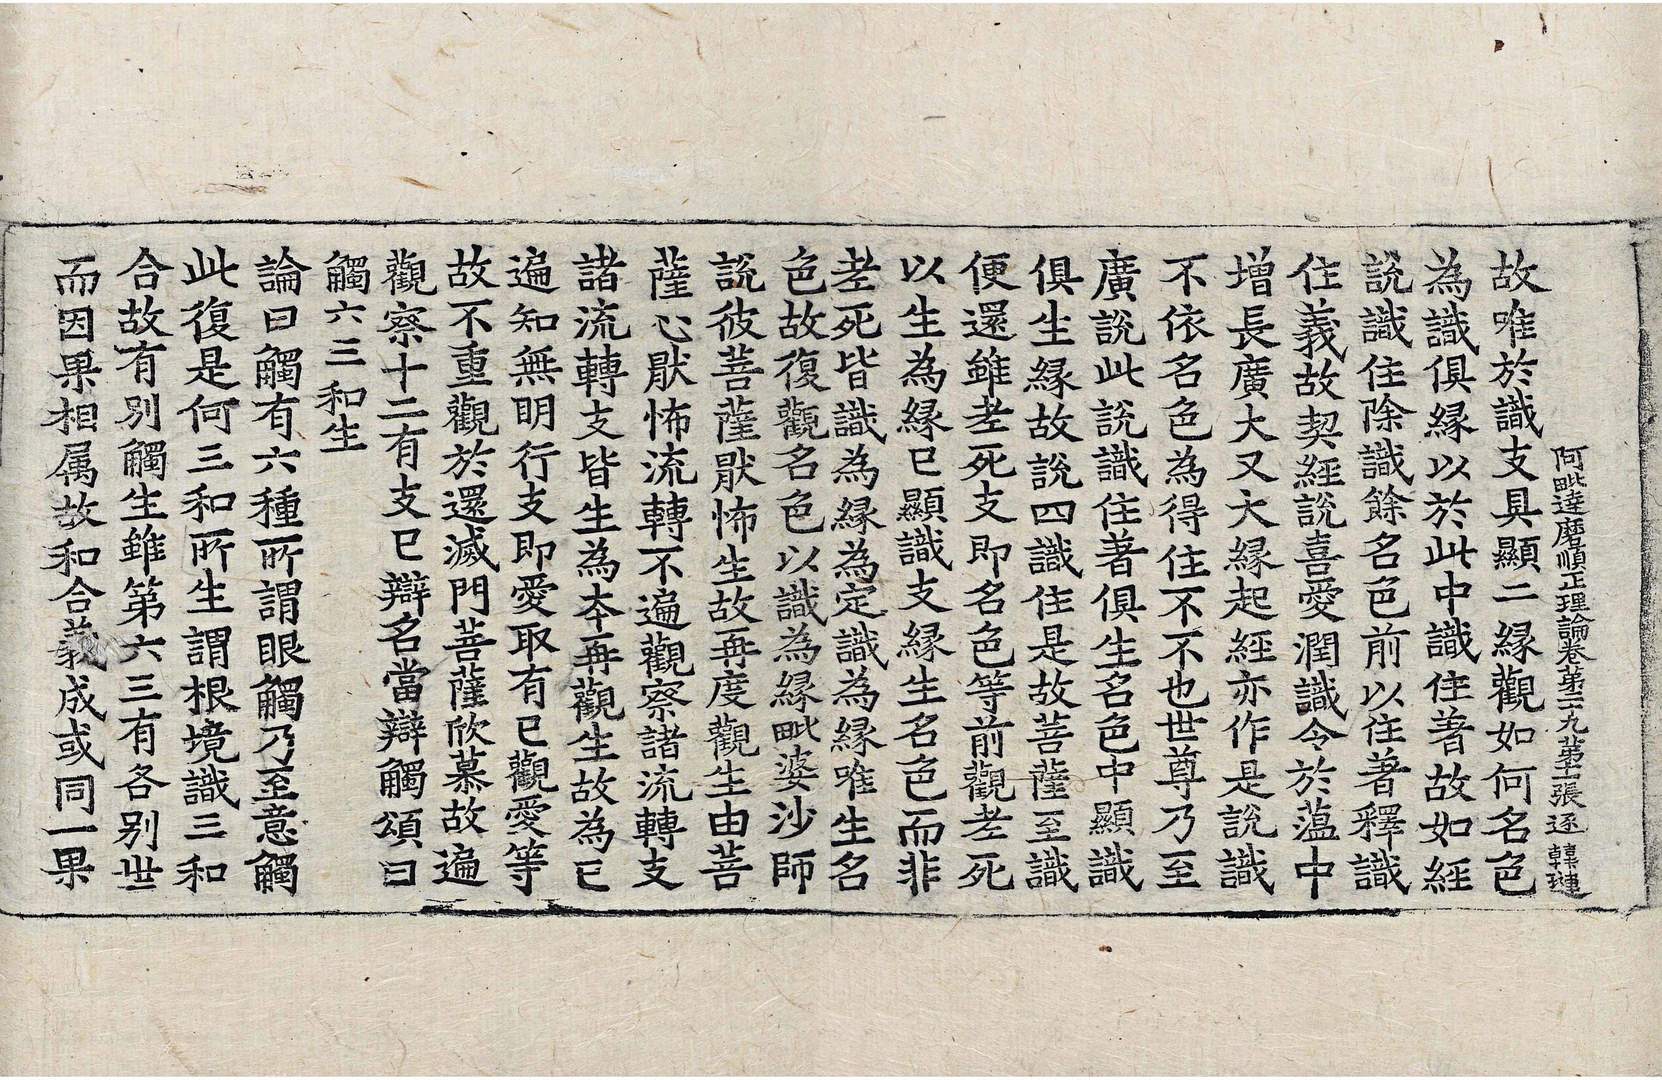 阿毗達磨順正理論卷第二九 第十一張 逐 韓璉
故唯於識支具顯二緣觀如何名色
為識俱緣以於此中識住著故如經
說識住除識餘名色前以住著釋識
住義故契經說喜愛潤識令於薀中
增長廣大又大緣起經亦作是說識
不依名色為得住不不也世尊乃至
廣說此說識住著俱生名色中顯識
俱生緣故說四識住是故菩薩至識
便還雖老死支即名色等前觀老死
以生為緣已顯識支緣生名色而非
老死皆識為緣為定識為緣唯生名
色故復觀名色以識為緣毗婆沙師
說彼菩薩猒怖生故再度觀生由菩
薩心猒怖流轉不遍觀察諸流轉支
諸流轉支皆生為本再觀生故為已
遍知無明行支即愛取有已觀愛等
故不重觀於還滅門菩薩欣慕故遍
觀察十二有支已辯名當辯觸頌曰
觸六三和生
論曰觸有六種所謂眼觸乃至意觸
此復是何三和所生謂根境識三和
合故有別觸生雖第六三有各別世
而因果相属故和合義成或同一果